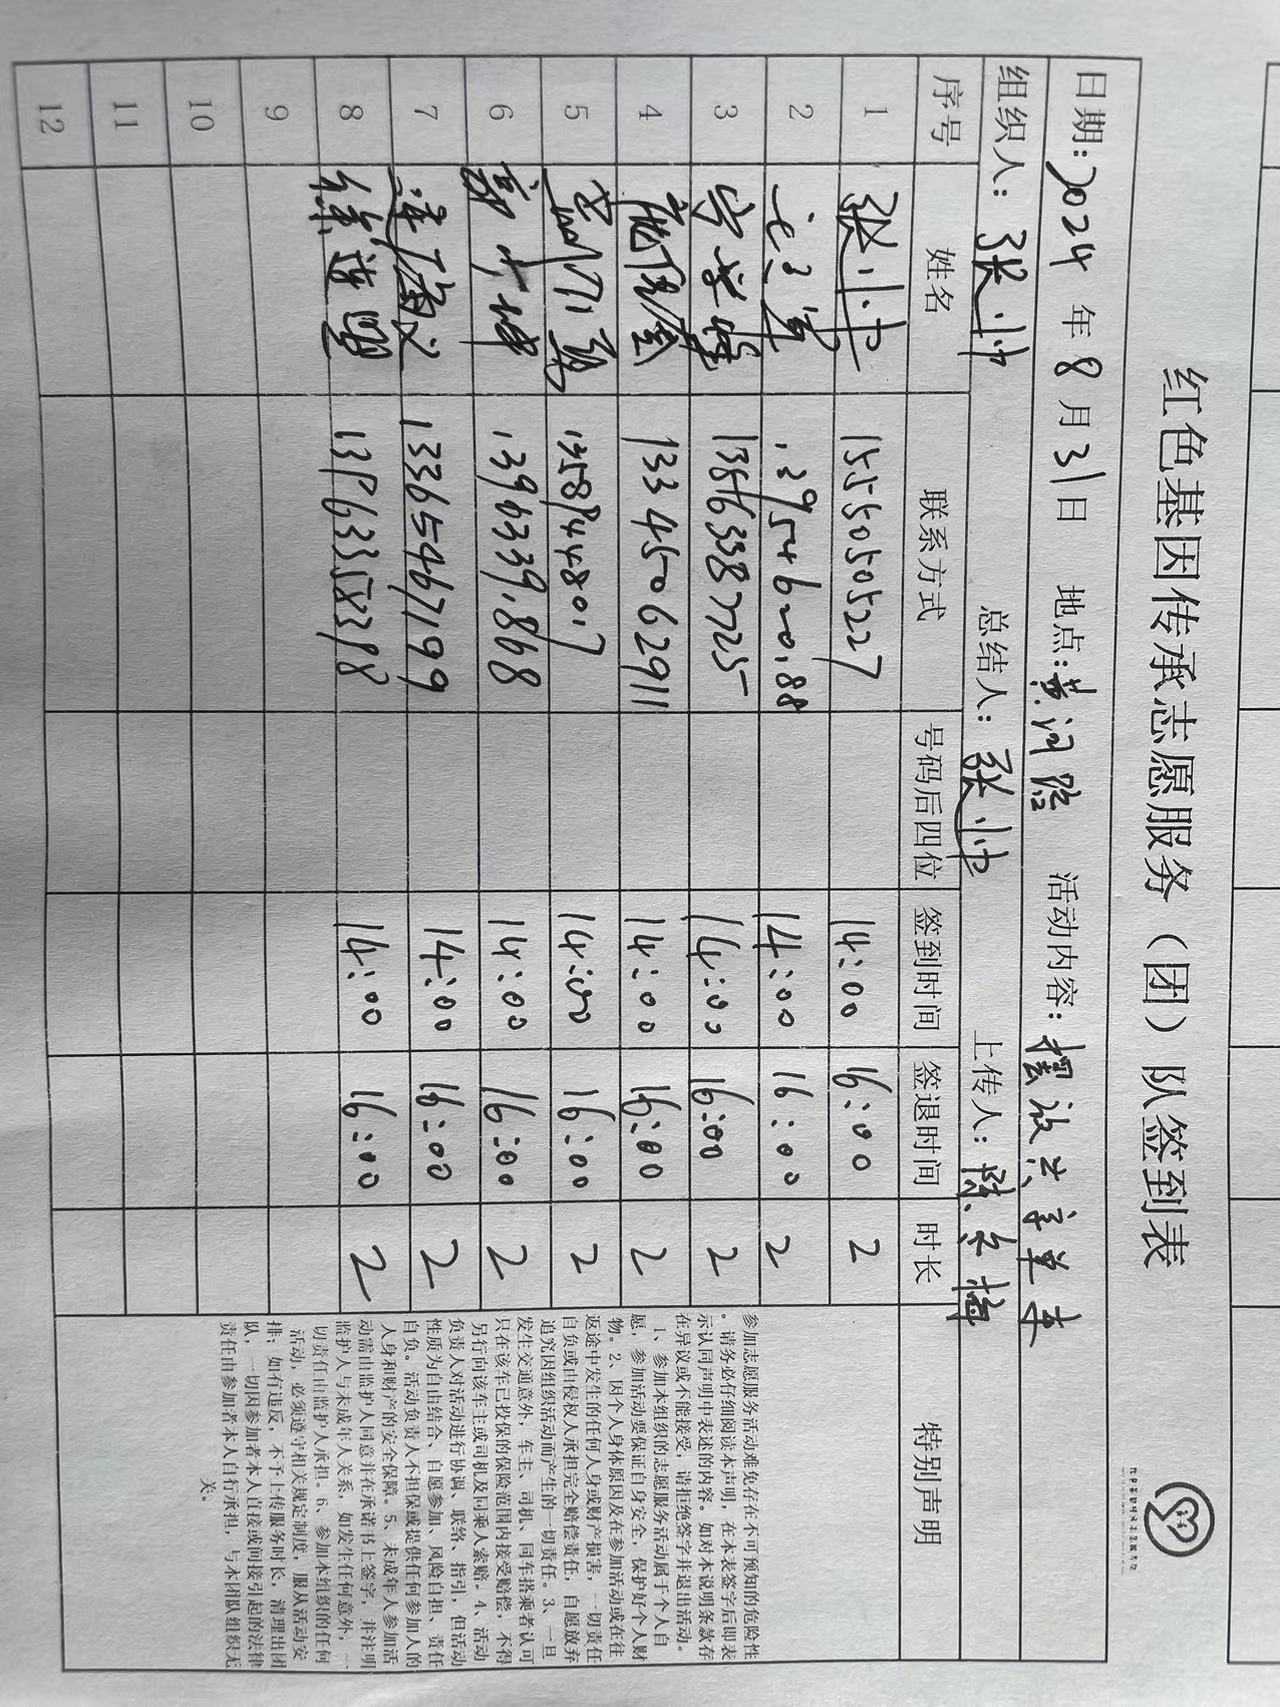 红色基因传承志愿服务（团）队签到表
日期:2024年8月31日 地点:黄河路 活动内容:摆放共享单车
组织人:张帅 总结人:张帅 上传人:陈东梅
序号 姓名 联系方式 号码后四位 签到时间 签退时间 时长 特别声明
1 张帅 15550505227 14:00 16:00 2
2 13954620188 14:00 16:00 2
3 13863387725 14:00 16:00 2
4 13345062911 14:00 16:00 2
5 13589448017 14:00 16:00 2
6 13963391868 14:00 16:00 2
7 13365467199 14:00 16:00 2
8 徐连盟 14:00 16:00 2
9
10
11
12
参加志愿服务活动难免存在不可预知的危险性
。请务必仔细阅读本声明，在本表签字后即表
示认同声明中表述的内容。如对本说明条款存
在异议或不能接受，请拒绝签字并退出活动。
1、参加本组织的志愿服务活动属于个人自
愿，参加活动要保证自身安全，保护好个人财
物。2、因个人身体原因及在参加活动或在往
返途中发生的任何人身或财产损害，一切责任
自负或由侵权人承担完全赔偿责任，自愿放弃
追究因组织活动而产生的一切责任。3、一旦
发生交通意外，车主、司机、同车搭乘者认可
只在该车已投保的保险范围内接受赔偿，不得
另行向该车主或司机及同乘人索赔。4、活动
负责人对活动进行协调、联络、指引，但活动
性质为自由结合、自愿参加、风险自担、责任
自负。活动负责人不担保或提供任何参加人的
人身和财产的安全保障。5、未成年人参加活
动需由监护人同意并在承诺书上签字，并注明
监护人与未成年人关系，如发生任何意外，一
切责任由监护人承担。6、参加本组织的任何
活动，必须遵守相关规定制度，服从活动安
排，如有违反，不予上传服务时长，清理出团
队，一切因参加者本人直接或间接引起的法律
责任由参加者本人自行承担，与本团队组织无
关。